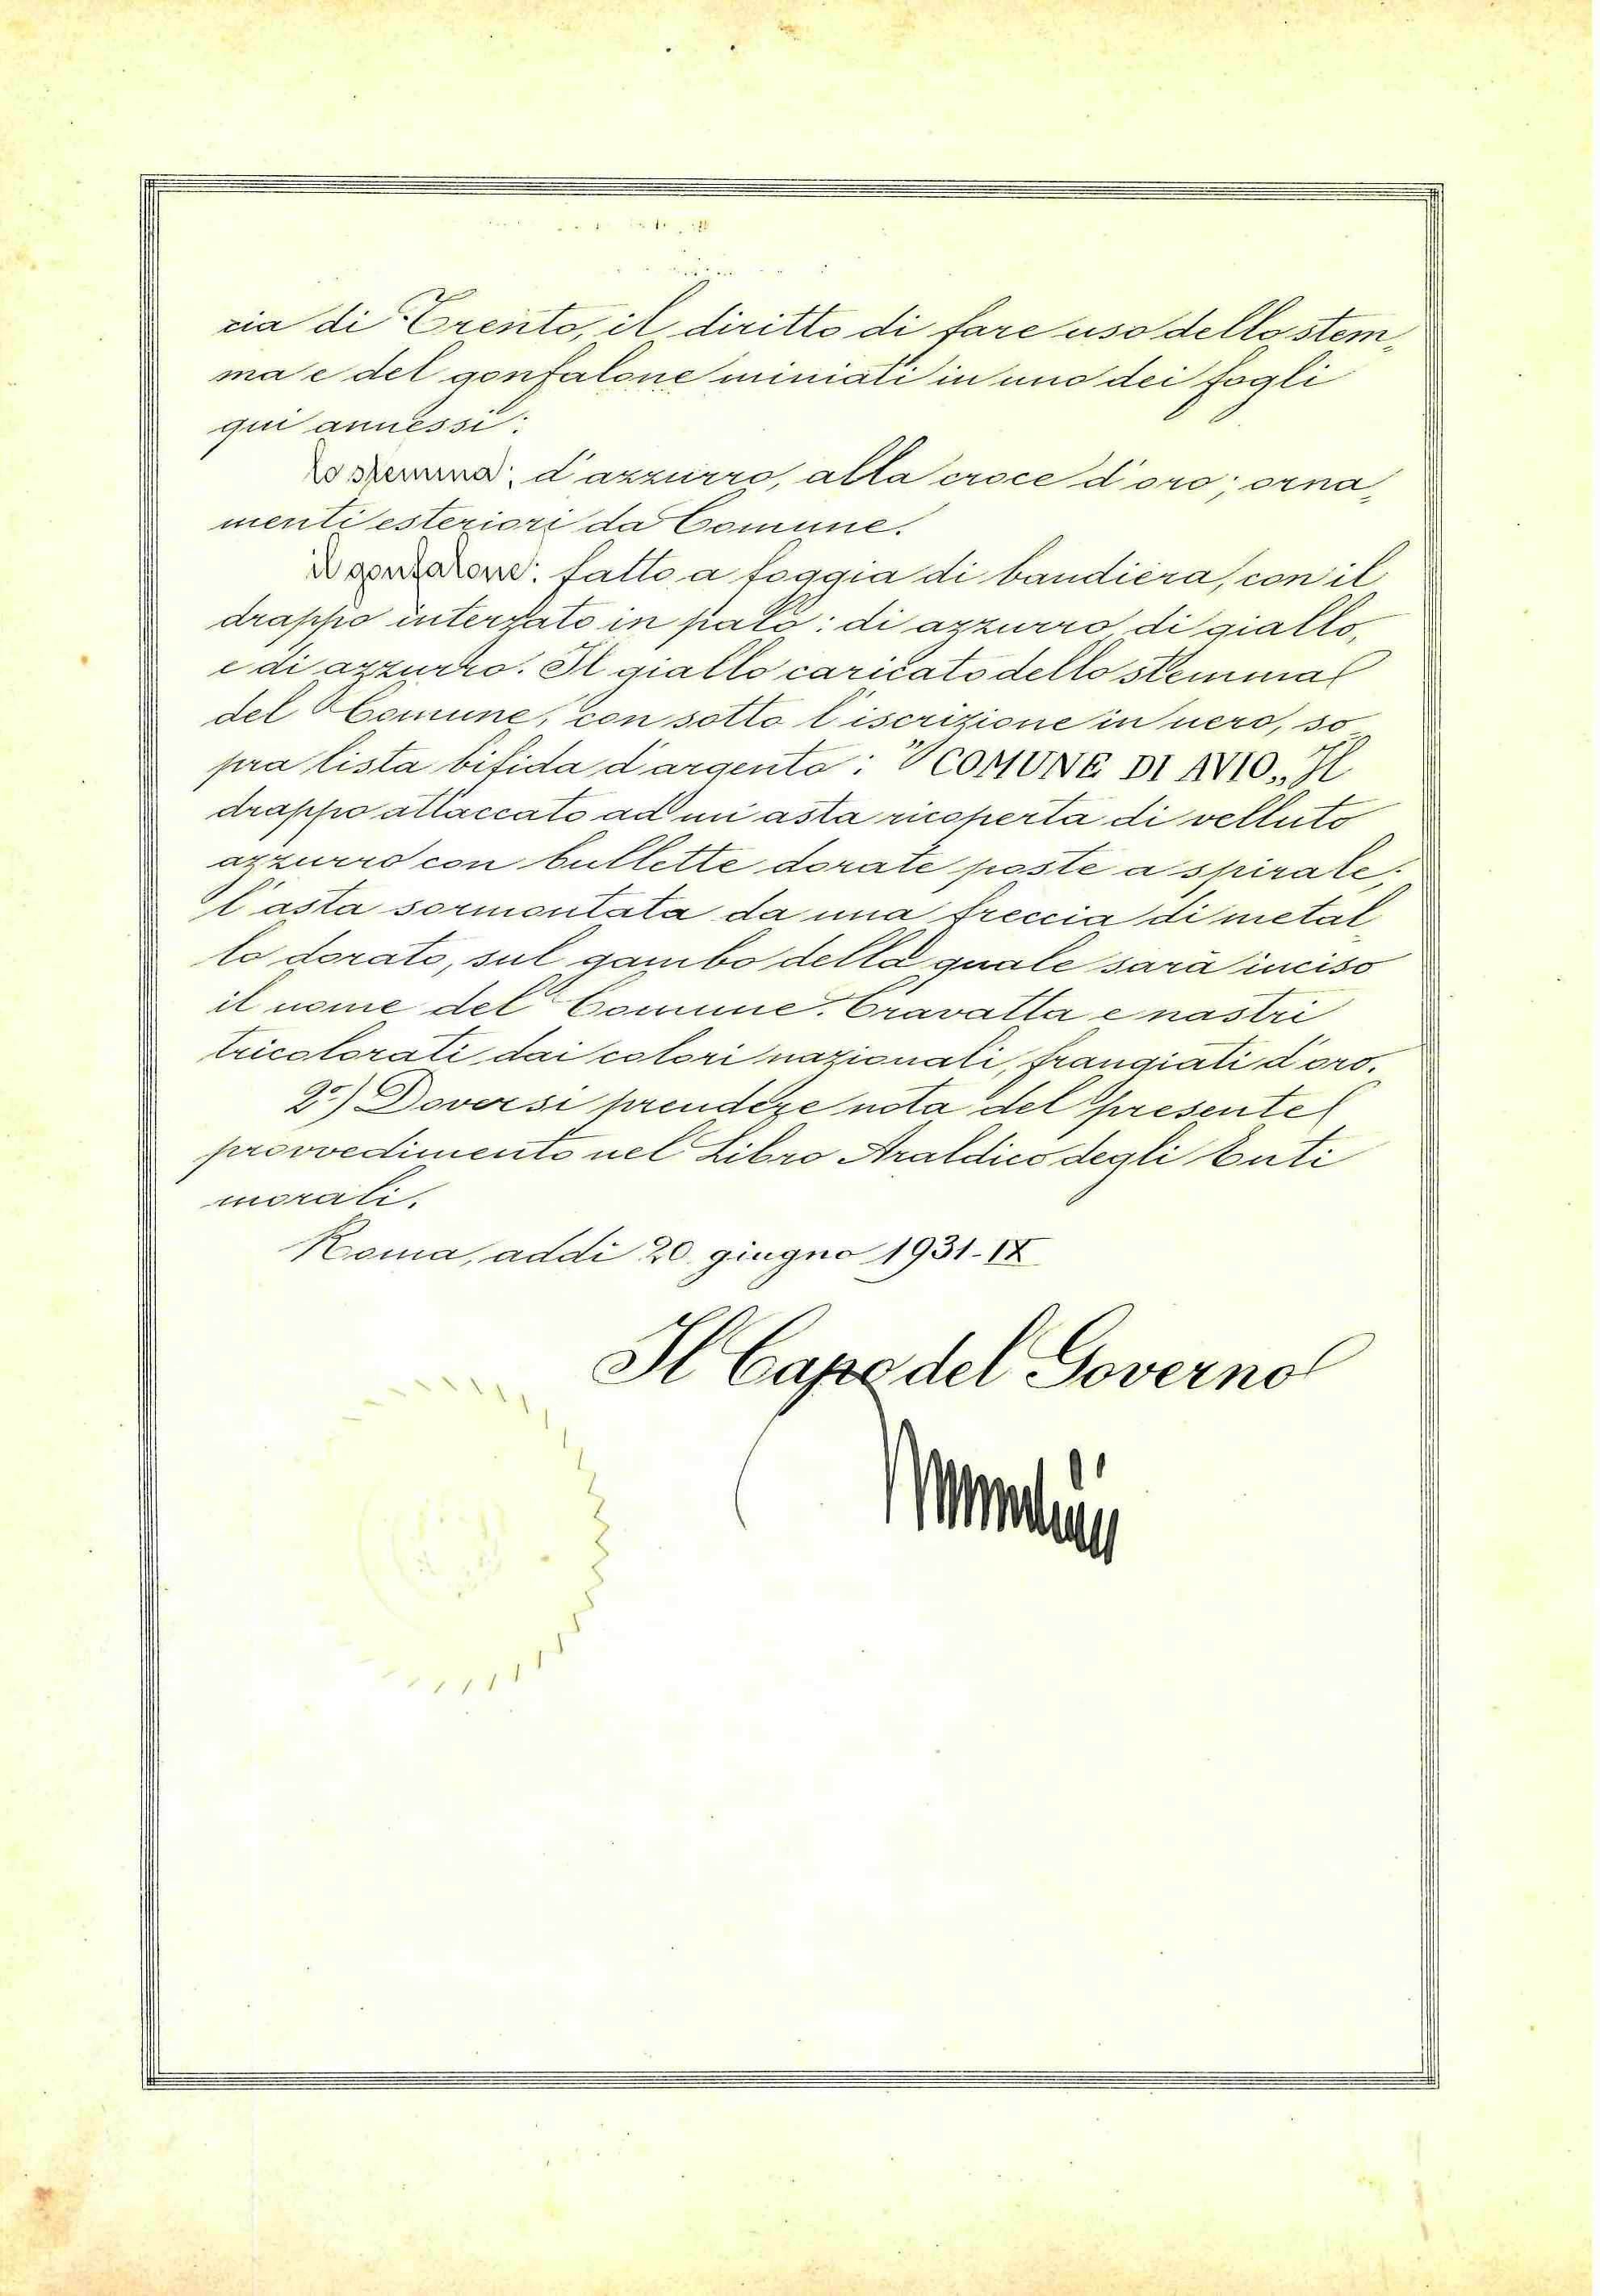 cia di Trento, il diritto di fare uso dello stem„
ma e del gonfalone miniati in uno dei fogli
qui annessi:
lo stemma: d'azzurro, alla croce d'oro; orna„
menti esteriori da Comune.
il gonfalone: fatto a foggia di bandiera, con il
drappo interzato in palo: di azzurro di giallo,
e di azzurro. Il giallo caricato dello stemma
del Comune, con sotto l'iscrizione in nero, so„
pra lista bifida d'argento: "COMUNE DI AVIO„ Il
drappo attaccato ad un'asta ricoperta di velluto
azzurro con bullette dorate poste a spirale;
l'asta sormontata da una freccia di metal„
lo dorato, sul gambo della quale sarà inciso
il nome del Comune. Cravatta e nastri
tricolorati dai colori nazionali, frangiati d'oro.
2°) Doversi prendere nota del presente
provvedimento nel Libro Araldico degli Enti
morali.
Roma, addì 20 giugno 1931-IX
Il Capo del Governo
Mussolini